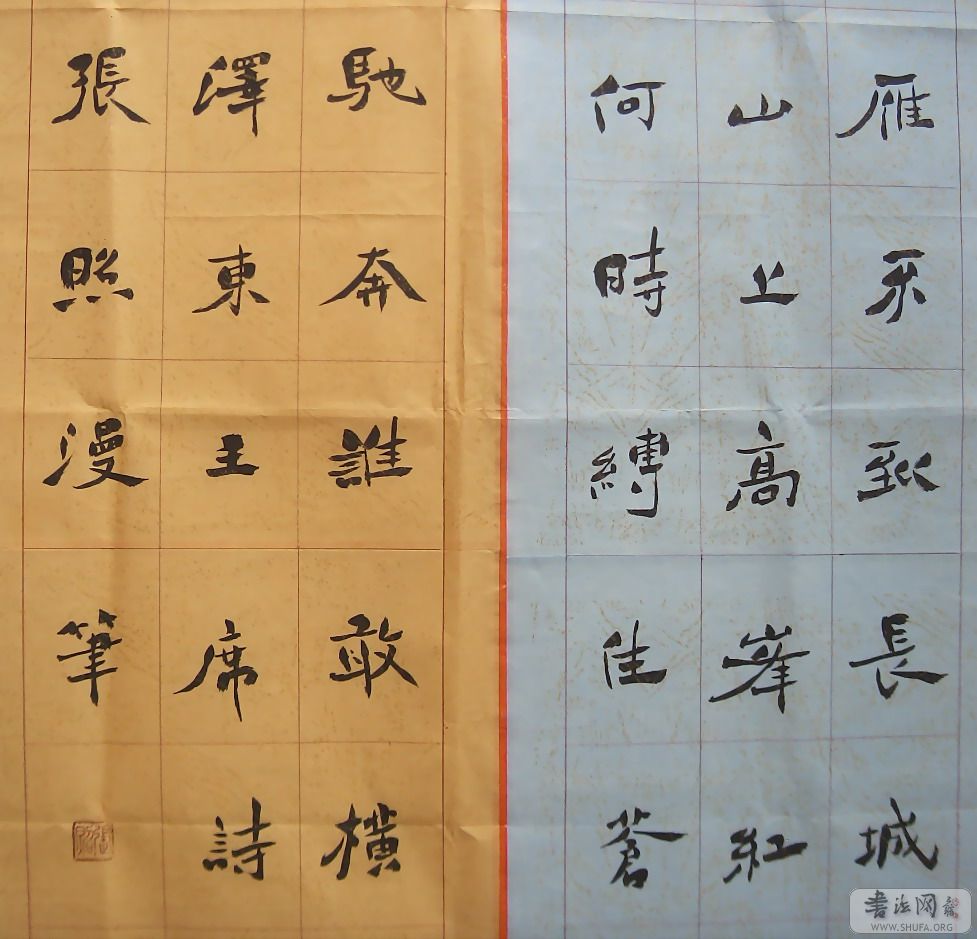 雁不到長城
山上高峯紅
何時縛住蒼
馳奔誰敢橫
澤東主席詩
張照漫筆
书法网
WWW.SHUFA.ORG